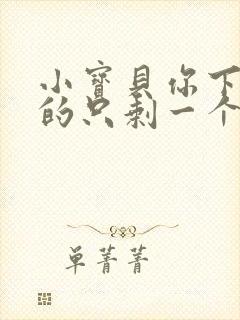 小寳貝你下
的只剩一个
单菁菁